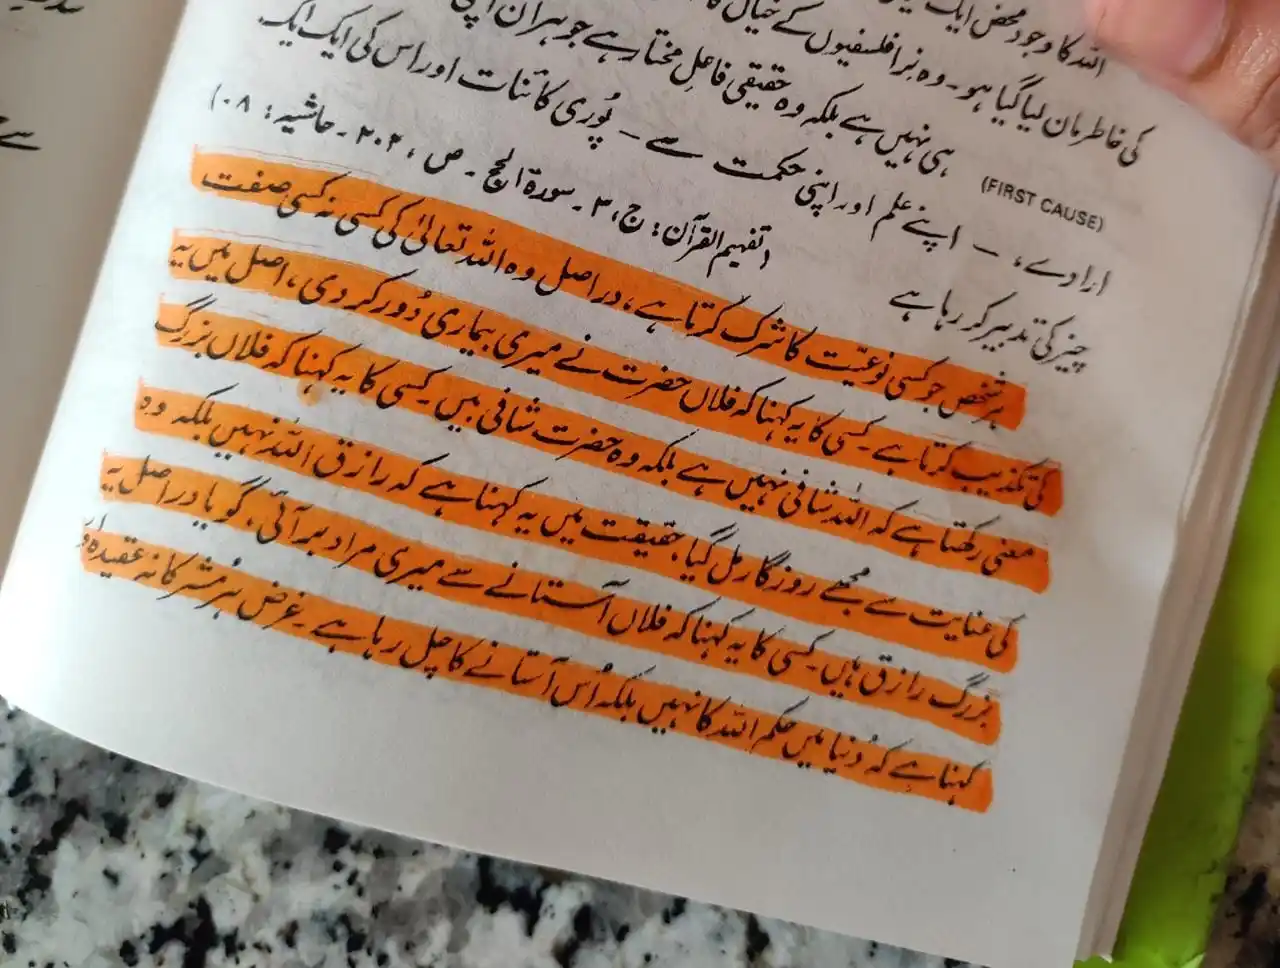 اللہ کا وجود محض ایک
کی خاطر مان لیا گیا ہو۔ وہ نرا فلسفیوں کے خیال کا
(FIRST CAUSE) ہی نہیں ہے بلکہ وہ حقیقی فاعلِ مختار ہے جو ہر آن اپنی
ارادے، — اپنے علم اور اپنی حکمت سے — پُوری کائنات اور اس کی ایک ایک
چیز کی تدبیر کر رہا ہے
(تفہیم القرآن: ج، ۳ ۔ سورۃ الحج ۔ ص ، ۲۰۲ ۔ حاشیہ: ۱۰۸)
ہر شخص جو کسی نوعیّت کا شرک کرتا ہے، دراصل وہ اللہ تعالیٰ کی کسی نہ کسی صفت
کی تکذیب کرتا ہے۔ کسی کا یہ کہنا کہ فلاں حضرت نے میری بیماری دُور کر دی، اصل میں یہ
معنی رکھتا ہے کہ اللہ شافی نہیں ہے بلکہ وہ حضرت شافی ہیں۔ کسی کا یہ کہنا کہ فلاں بزرگ
کی عنایت سے مجھے روزگار مل گیا، حقیقت میں یہ کہنا ہے کہ رازق اللہ نہیں بلکہ وہ
بزرگ رازق ہیں۔ کسی کا یہ کہنا کہ فلاں آستانے سے میری مراد بر آئی، گویا دراصل یہ
کہنا ہے کہ دُنیا میں حکم اللہ کا نہیں بلکہ اُس آستانے کا چل رہا ہے۔ غرض ہر مشرکانہ عقیدہ